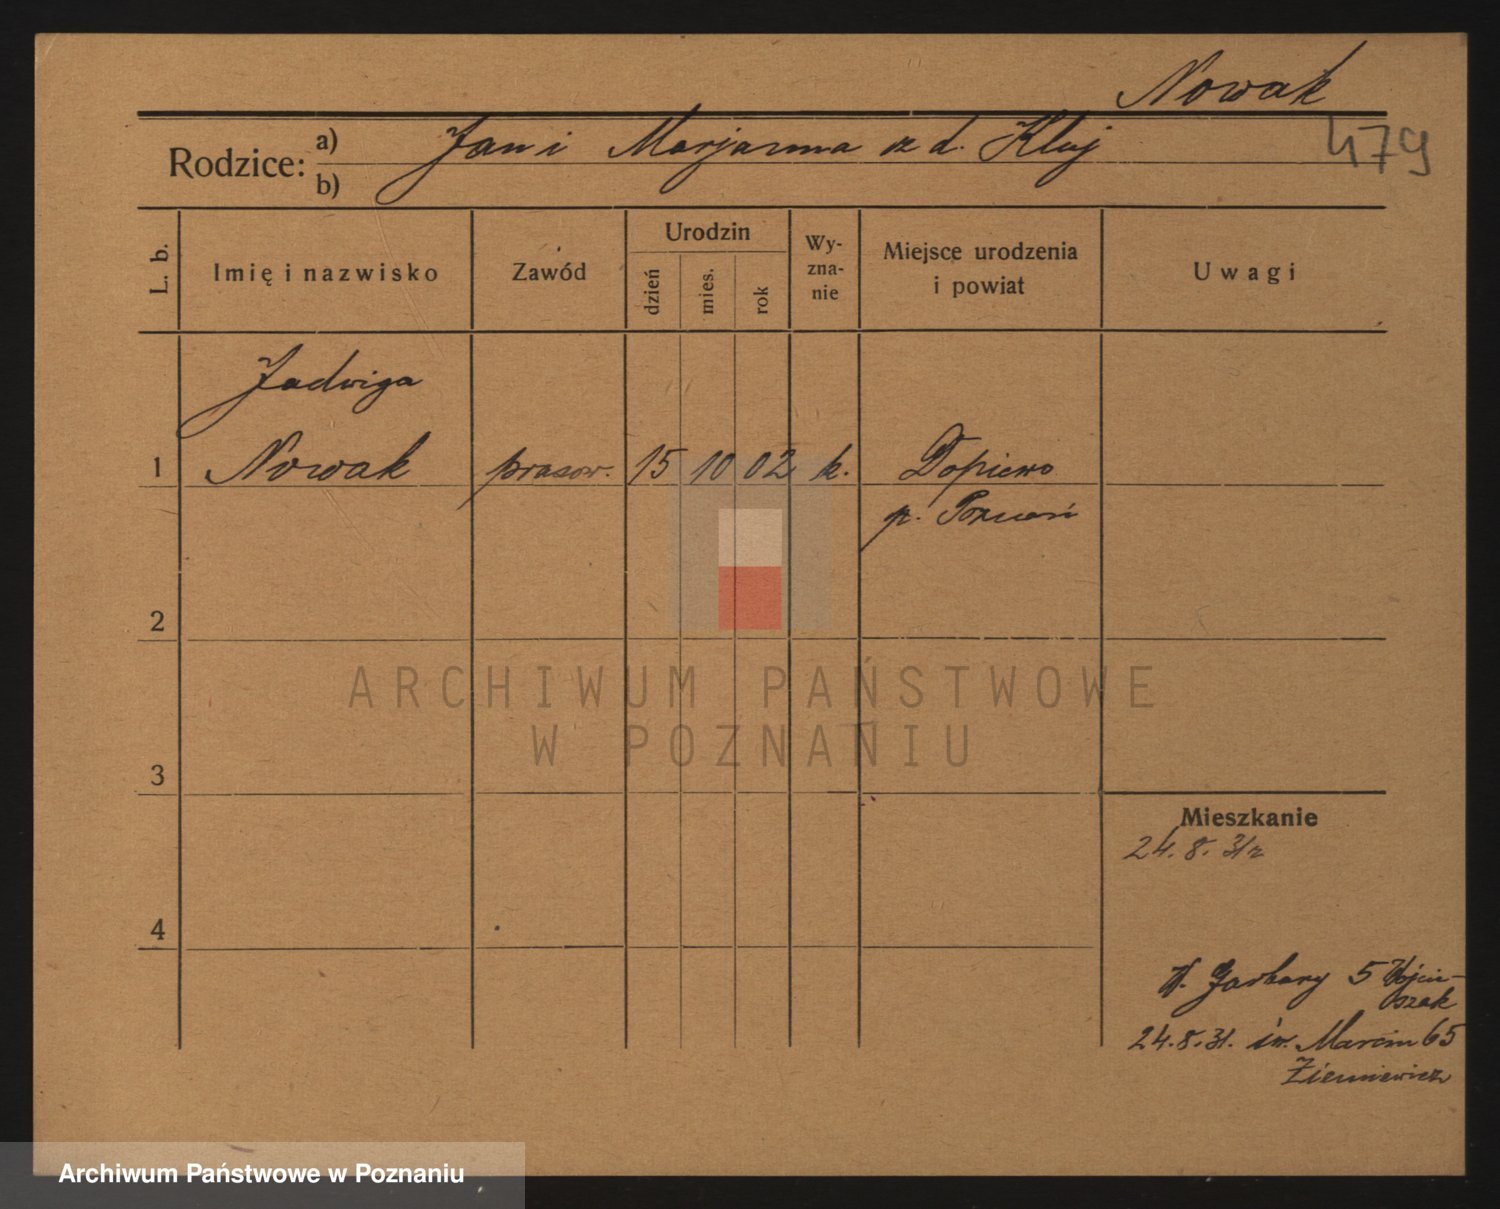 Nowak
479
Rodzice: a) Jan i Marjanna z d. Kluj
b)
L. b.
Imię i nazwisko
Zawód
Urodzin
dzień
mies.
rok
Wy-
zna-
nie
Miejsce urodzenia
i powiat
Uwagi
Jadwiga
1 Nowak prasow. 15 10 02 k. Dopiewo
p. Poznań
2
ARCHIWUM PAŃSTWOWE
W POZNANIU
3
Mieszkanie
24. 8. 31 r
4
Garbary 5 Wojcie-
szak
24. 8. 31. św. Marcin 65
Ziemniewicz
Archiwum Państwowe w Poznaniu